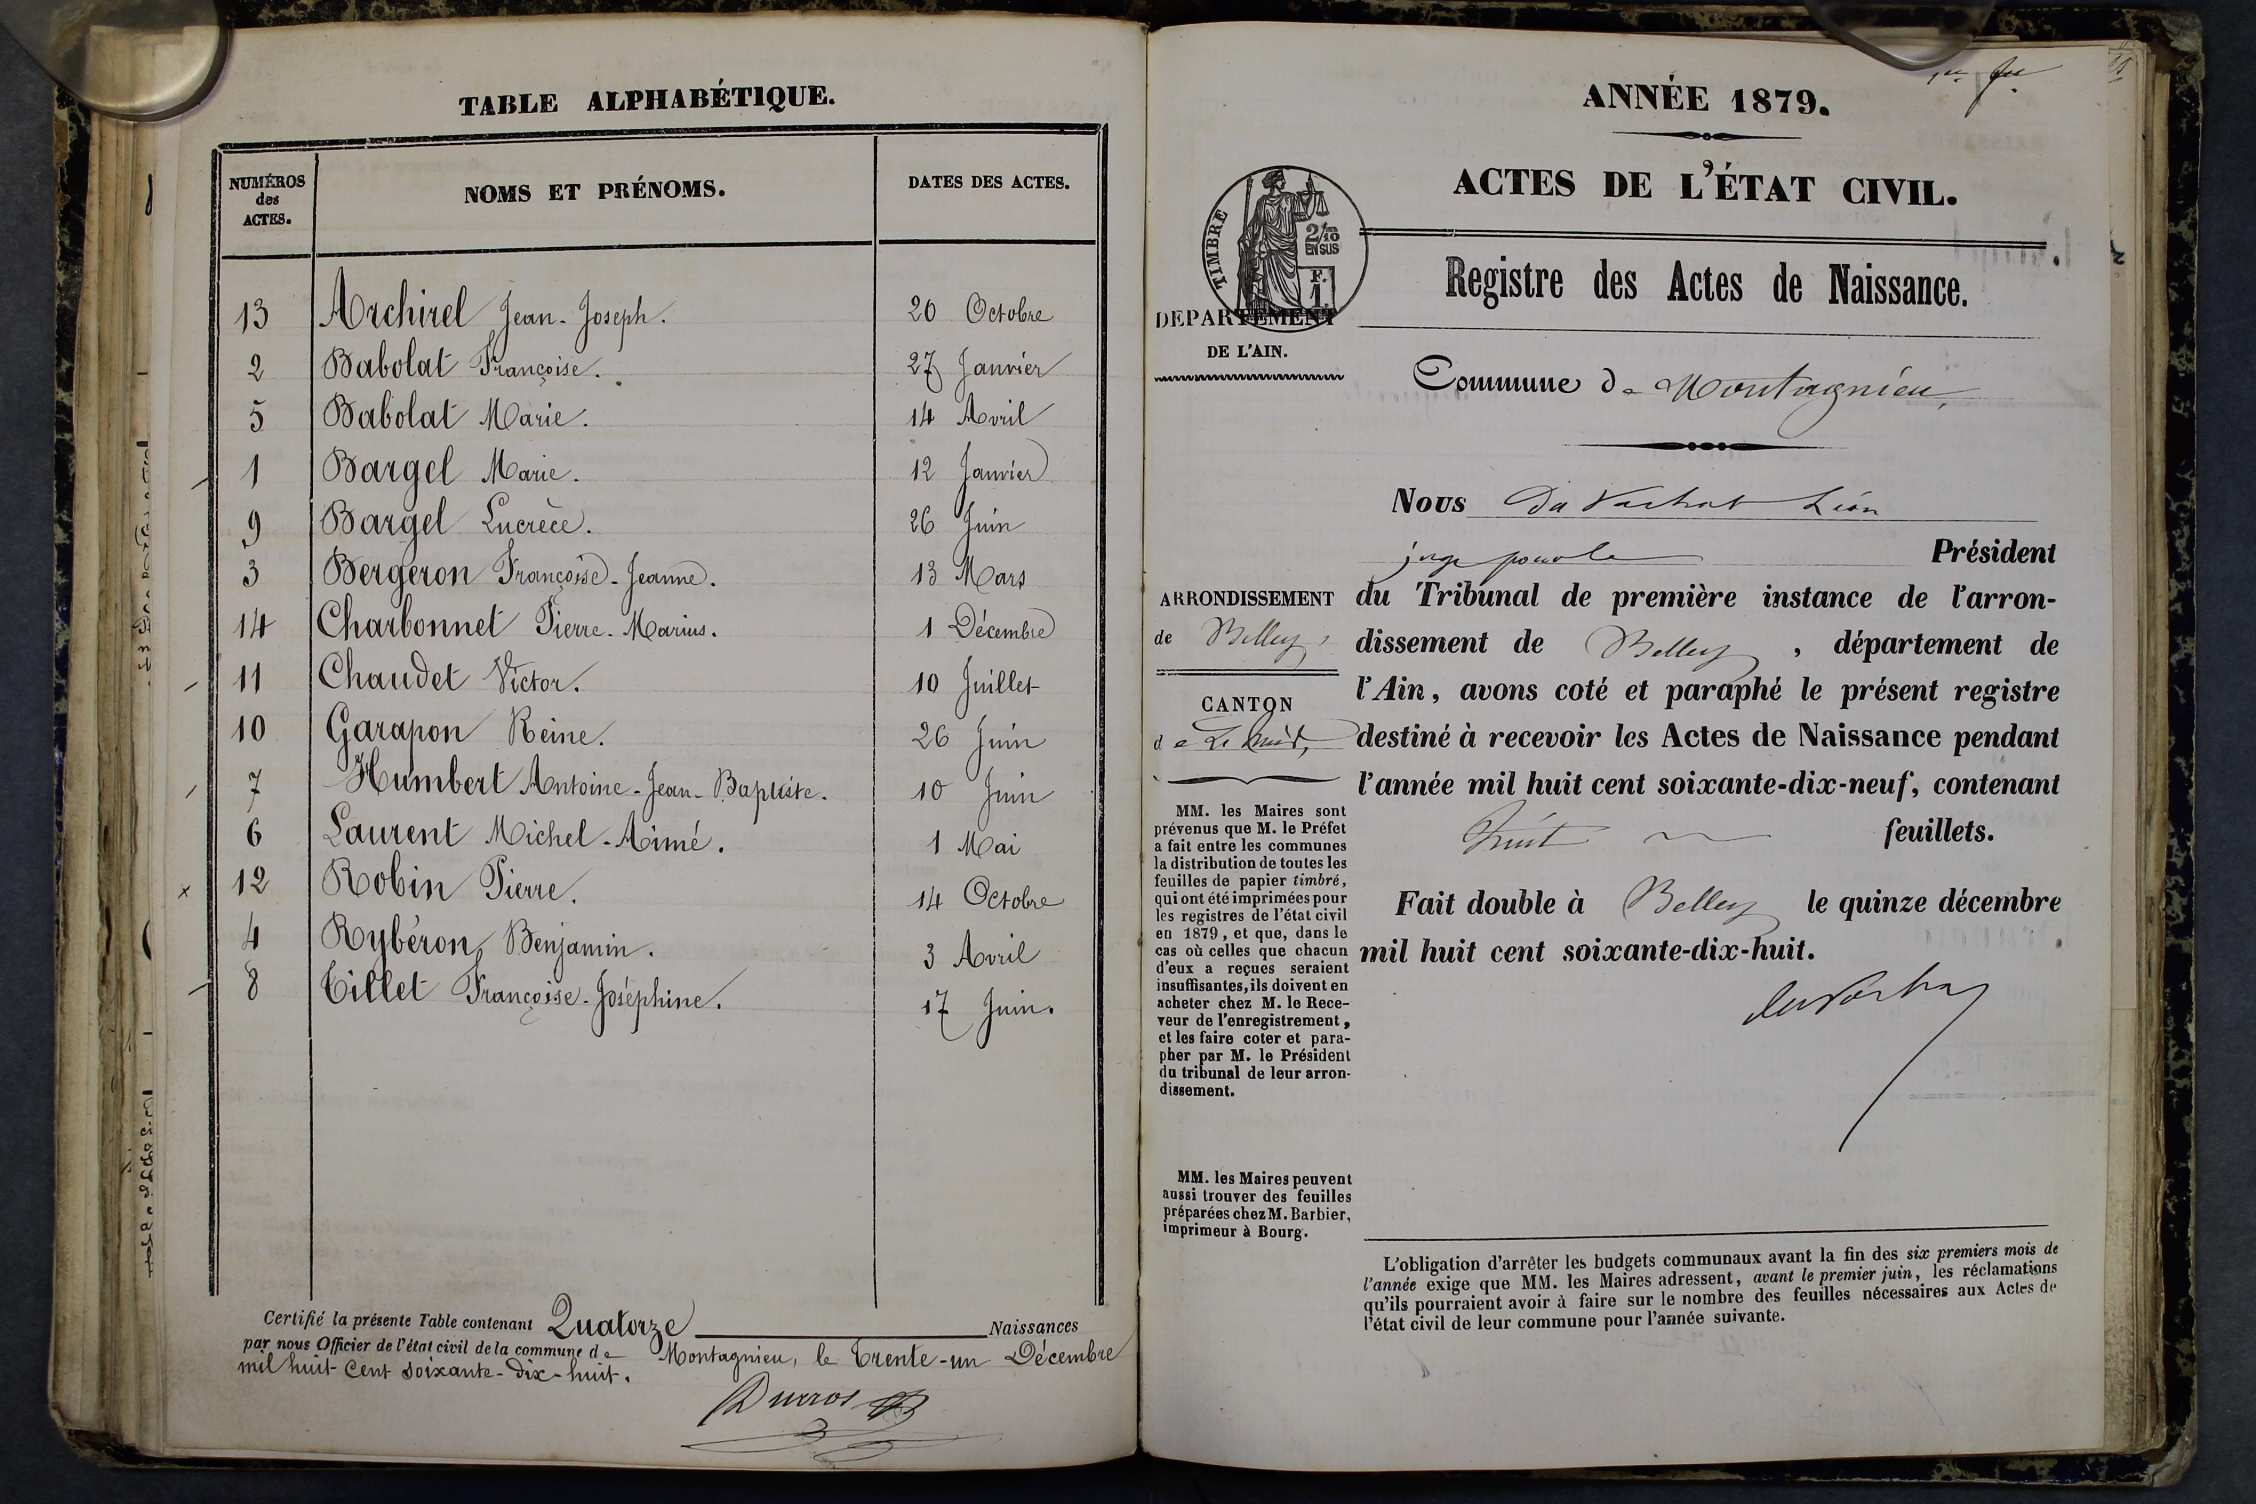 TABLE ALPHABÉTIQUE.
NUMÉROS des ACTES. NOMS ET PRÉNOMS. DATES DES ACTES.
13 Archirel Jean-Joseph. 20 Octobre
2 Babolat Françoise. 27 Janvier
5 Babolat Marie. 14 Avril
1 Bargel Marie. 12 Janvier
9 Bargel Lucrèce. 26 Juin
3 Bergeron Françoise-Jeanne. 13 Mars
14 Charbonnet Pierre-Marius. 1 Décembre
11 Chaudet Victor. 10 Juillet
10 Garapon Reine. 26 Juin
7 Humbert Antoine-Jean-Baptiste. 10 Juin
6 Laurent Michel-Aimé. 1 Mai
12 Robin Pierre. 14 Octobre
4 Rybéron Benjamin. 3 Avril
8 Tillet Françoise-Joséphine. 17 Juin.
Certifié la présente Table contenant Quatorze Naissances
par nous Officier de l'état civil de la commune de Montagnieu, le Trente-un Décembre
mil huit-cent soixante-dix-huit.
ANNÉE 1879.
ACTES DE L'ÉTAT CIVIL.
TIMBRE
2/10
EN SUS
F.
1.
Registre des Actes de Naissance.
DÉPARTEMENT
DE L'AIN.
Commune de Montagnieu,
Nous Du Vachat Léon
juge pour le Président
du Tribunal de première instance de l'arron-
dissement de Belley, département de
l'Ain, avons coté et paraphé le présent registre
destiné à recevoir les Actes de Naissance pendant
l'année mil huit cent soixante-dix-neuf, contenant
huit feuillets.
Fait double à Belley le quinze décembre
mil huit cent soixante-dix-huit.
ARRONDISSEMENT
de Belley,
CANTON
de Lhuis,
MM. les Maires sont
prévenus que M. le Préfet
a fait entre les communes
la distribution de toutes les
feuilles de papier timbré,
qui ont été imprimées pour
les registres de l'état civil
en 1879, et que, dans le
cas où celles que chacun
d'eux a reçues seraient
insuffisantes, ils doivent en
acheter chez M. le Rece-
veur de l'enregistrement,
et les faire coter et para-
pher par M. le Président
du tribunal de leur arron-
dissement.
MM. les Maires peuvent
aussi trouver des feuilles
préparées chez M. Barbier,
imprimeur à Bourg.
L'obligation d'arrêter les budgets communaux avant la fin des six premiers mois de
l'année exige que MM. les Maires adressent, avant le premier juin, les réclamations
qu'ils pourraient avoir à faire sur le nombre des feuilles nécessaires aux Actes de
l'état civil de leur commune pour l'année suivante.